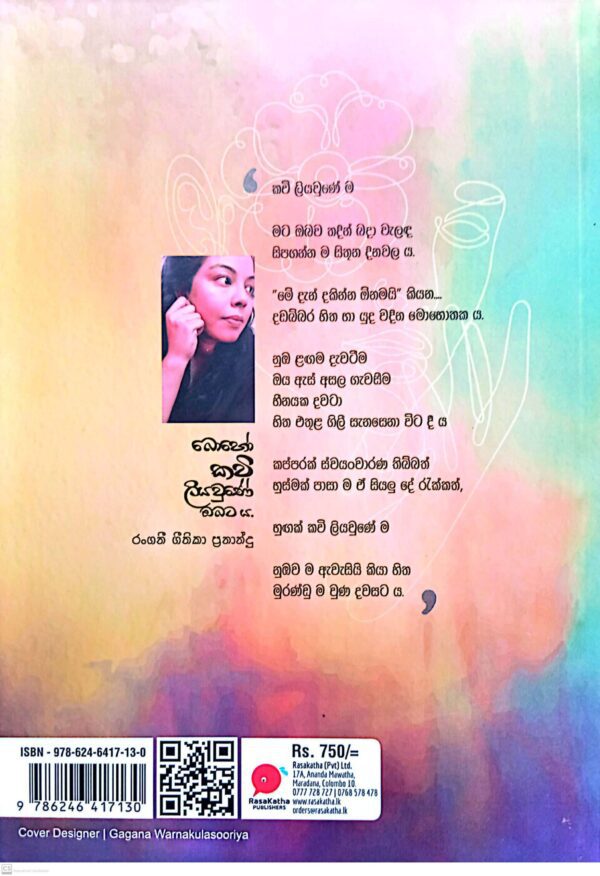 ‘
කවි ලියවුණේ ම
මට ඔබව තදින් බදා වැලඳ
සිපගන්න ම සිතුන දිනවල ය.
“මේ දැන් දකින්න ඕනමයි” කියන...
දඩබ්බර හිත හා යුද වදින මොහොතක ය.
නුඹ ළඟම දැවටීම
ඔය ඇස් අසල ගැවසීම
හීනයක දවටා
හිත එතුළ ගිලී සැනසෙනා විට දී ය
කප්පරක් ස්වයංවාරණ තිබ්බත්
හුස්මක් පාසා ම ඒ සියලු දේ රැක්කත්,
හුඟක් කවි ලියවුණේ ම
නුඹව ම ඇවැසියි කියා හිත
මුරණ්ඩු ම වුණ දවසට ය.
’
බොහෝ
කවි
ලියවුණේ
ඔබට ය.
රංගනී ගීතිකා ප්‍රනාන්දු
ISBN - 978-624-6417-13-0
9 786246 417130
RasaKatha
PUBLISHERS
Rs. 750/=
Rasakatha (Pvt) Ltd.
17A, Ananda Mawatha,
Maradana, Colombo 10.
0777 728 727 | 0768 578 478
www.rasakatha.lk
orders@rasakatha.lk
Cover Designer | Gagana Warnakulasooriya
CS